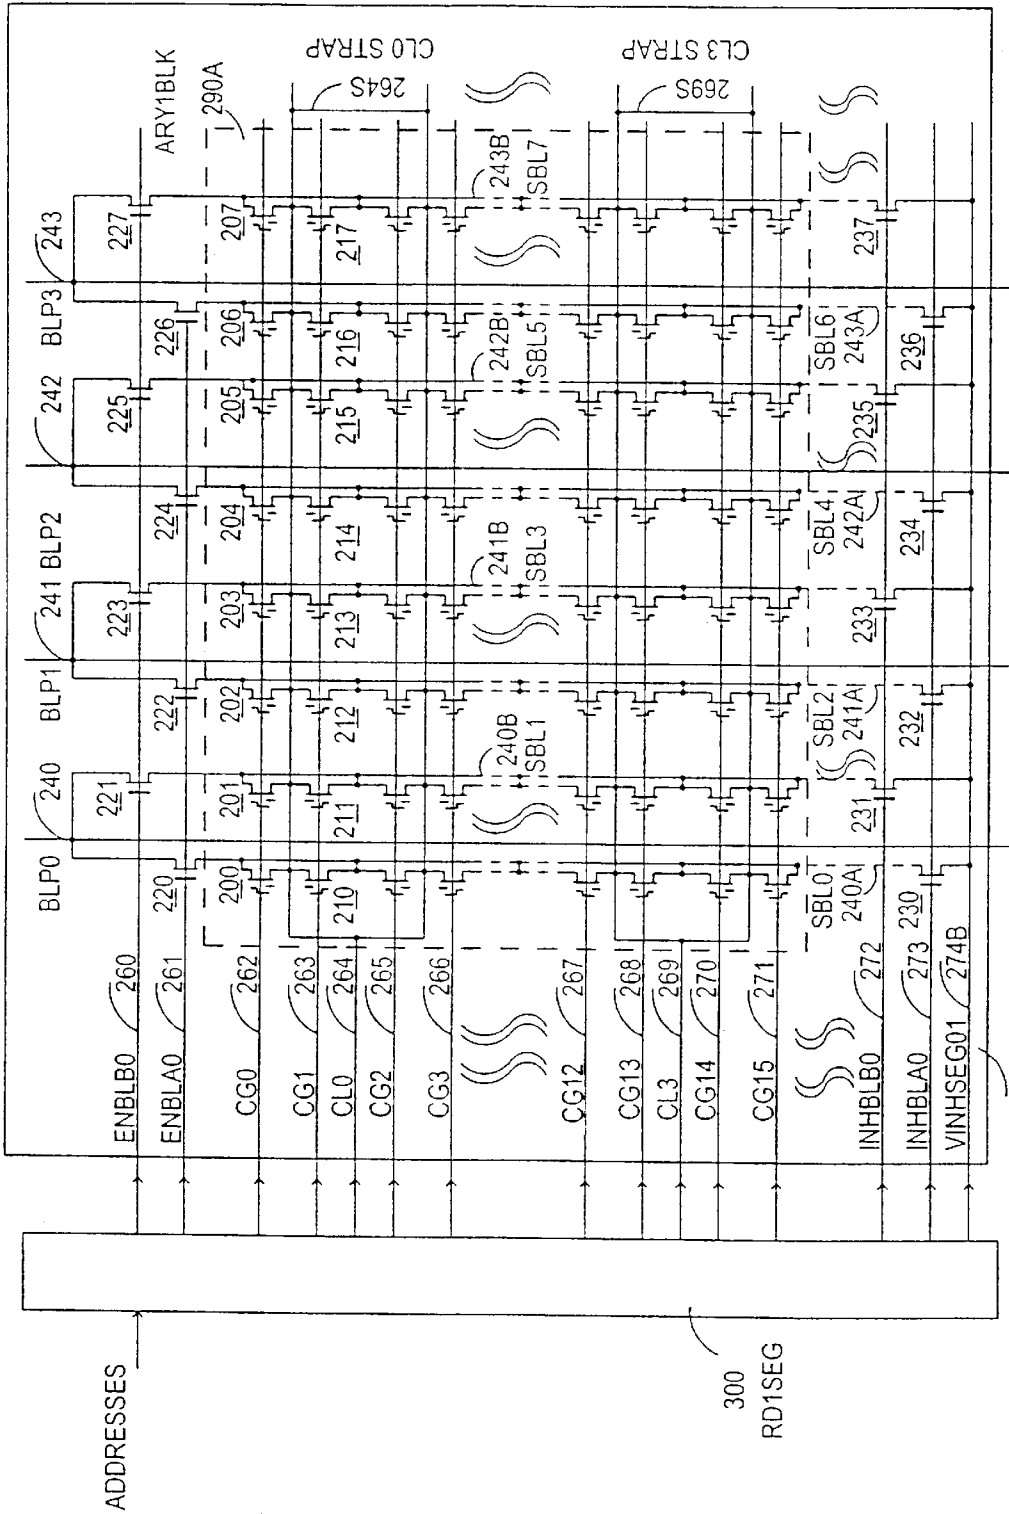 ADDRESSES
300
RD1SEG
ENBLB0 260
ENBLA0 261
CG0 262
CG1 263
CL0 264
CG2 265
CG3 266
CG12 267
CG13 268
CL3 269
CG14 270
CG15 271
INHBLB0 272
INHBLA0 273
VINHSEG01 274B
BLP0 240
BLP1 241
BLP2 242
BLP3 243
220 221 222 223 224 225 226 227
ARY1BLK
290A
200 201 202 203 204 205 206 207
210 211 212 213 214 215 216 217
CL0 STRAP
264S
240B
SBL1
241B
SBL3
242B
SBL5
243B
SBL7
CL3 STRAP
269S
SBL0
240A
SBL2
241A
SBL4
242A
SBL6
243A
230 231 232 233 234 235 236 237